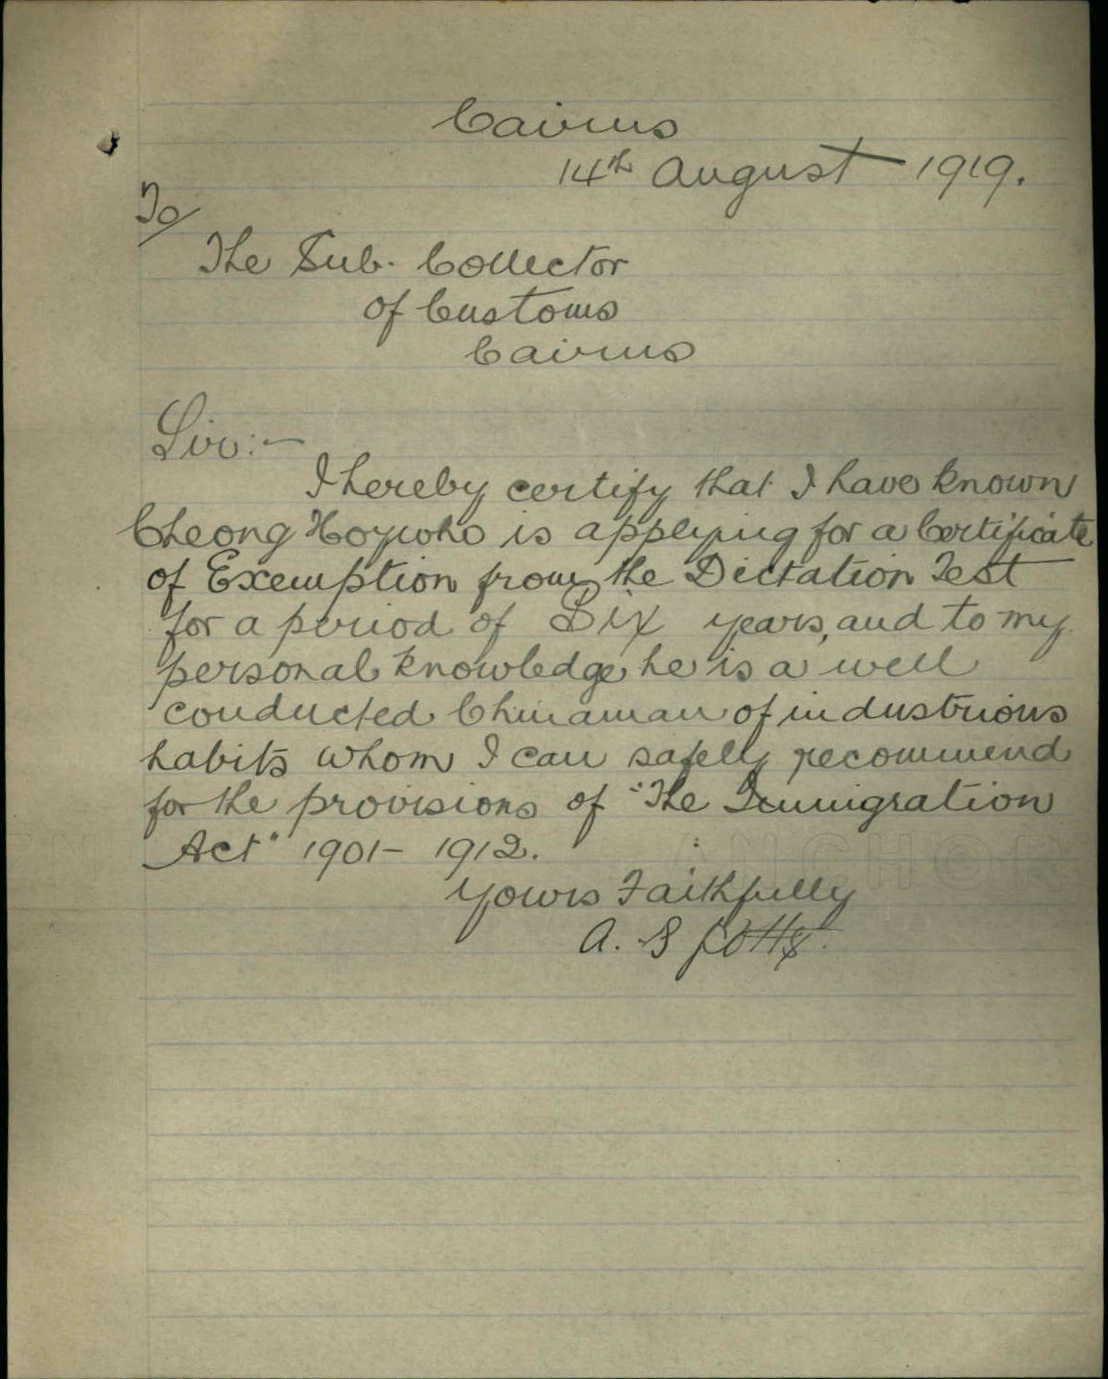 Cairns
14th August 1919.
To
The Sub. Collector
of Customs
Cairns
Sir:-
I hereby certify that I have known
Cheong Hoy who is applying for a Certificate
of Exemption from the Dictation Test
for a period of Six years, and to my
personal knowledge he is a well
conducted Chinaman of industrious
habits whom I can safely recommend
for the provisions of "The Immigration
Act" 1901 - 1912.
Yours Faithfully
A. S